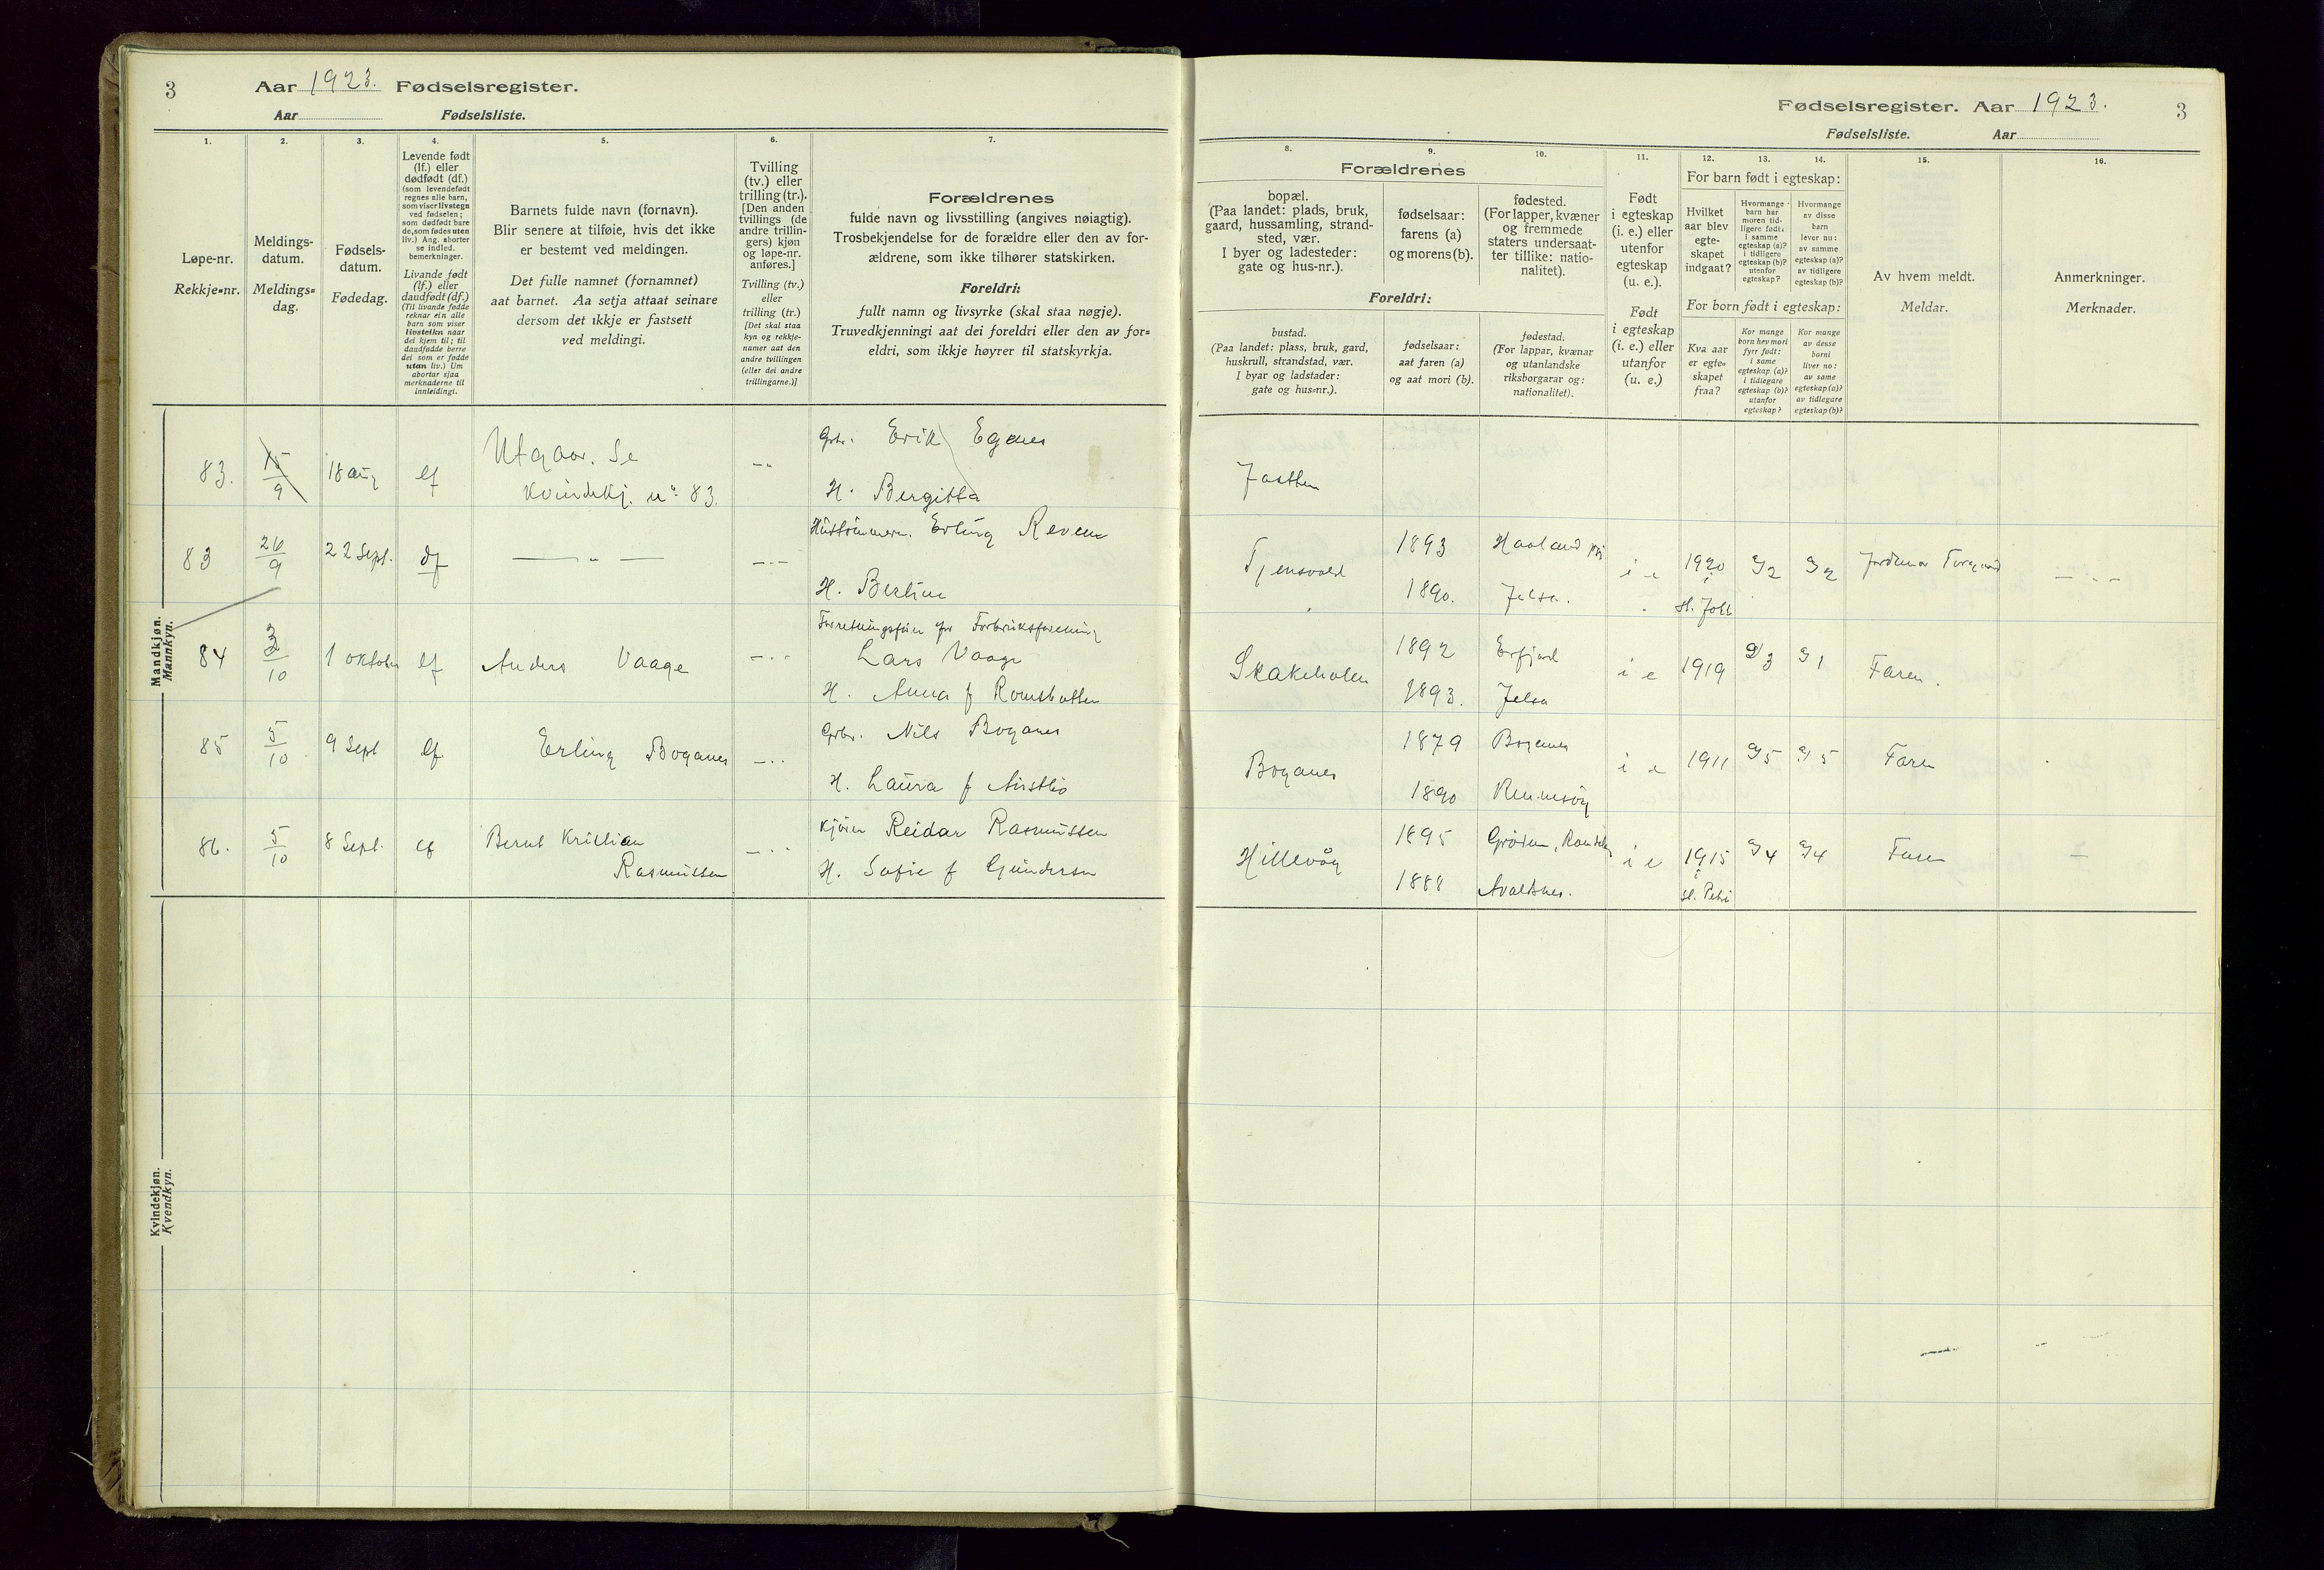 3
Aar 1923. Fødselsregister.
Aar Fødselsliste.
1.
Løpe-nr.
Rekkje-nr.
2.
Meldings-
datum.
Meldings-
dag.
3.
Fødsels-
datum.
Fødedag.
4.
Levende født
(lf.) eller
dødfødt (df.)
(som levendefødt
regnes alle barn,
som viser livstegn
ved fødselen;
som dødfødt bare
de, som fødes uten
liv.) Ang. aborter
se indled.
bemerkninger.
Livande født
(lf.) eller
daudfødt (df.)
(Til livande fødde
reknar ein alle
barn som viser
livsteikn naar
dei kjem til; til
daudfødde berre
dei som er fødde
utan liv.) Um
abortar sjaa
merknaderne til
innleidingi.
5.
Barnets fulde navn (fornavn).
Blir senere at tilføie, hvis det ikke
er bestemt ved meldingen.
Det fulle namnet (fornamnet)
aat barnet. Aa setja attaat seinare
dersom det ikkje er fastsett
ved meldingi.
6.
Tvilling
(tv.) eller
trilling (tr.).
[Den anden
tvillings (de
andre trillin-
gers) kjøn
og løpe-nr.
anføres.]
Tvilling (tv.)
eller
trilling (tr.)
[Det skal staa
kyn og rekkje-
numer aat den
andre tvillingen
(eller dei andre
trillingarne.)]
7.
Forældrenes
fulde navn og livsstilling (angives nøiagtig).
Trosbekjendelse for de forældre eller den av for-
ældrene, som ikke tilhører statskirken.
Foreldri:
fullt namn og livsyrke (skal staa nøgje).
Truvedkjenningi aat dei foreldri eller den av for-
eldri, som ikkje høyrer til statskyrkja.
Fødselsregister. Aar 1923.
3
Fødselsliste. Aar
8.
Forældrenes
bopæl.
(Paa landet: plads, bruk,
gaard, hussamling, strand-
sted, vær.
I byer og ladesteder:
gate og hus-nr.).
Foreldri:
bustad.
(Paa landet: plass, bruk, gard,
huskrull, strandstad, vær.
I byar og ladstader:
gate og hus-nr.).
9.
fødselsaar:
farens (a)
og morens (b).
fødselsaar:
aat faren (a)
og aat mori (b).
10.
fødested.
(For lapper, kvæner
og fremmede
staters undersaat-
ter tillike: natio-
nalitet).
fødestad.
(For lappar, kvænar
og utanlandske
riksborgarar og:
nationalitet).
11.
Født
i egteskap
(i. e.) eller
utenfor
egteskap
(u. e.).
Født
i egteskap
(i. e.) eller
utanfor
(u. e.)
12.
For barn født i egteskap:
Hvilket
aar blev
egte-
skapet
indgaat?
For born født i egteskap:
Kva aar
er egte-
skapet
fraa?
13.
Hvormange
barn har
moren tid-
ligere født:
i samme
egteskap (a)?
i tidligere
egteskap (b)?
utenfor
egteskap?
Kor mange
born hev mori
fyrr født:
i same
egteskap (a)?
i tidlegare
egteskap (b)?
utanfor
egteskap?
14.
Hvormange
av disse
barn
lever nu:
av samme
egteskap (a)?
av tidligere
egteskap (b)?
Kor mange
av desse
borni
liver no:
av same
egteskap (a)?
av tidlegare
egteskap (b)?
15.
Av hvem meldt.
Meldar.
16.
Anmerkninger.
Merknader.
Mandkjøn.
Mannkyn.
83. 15/9 18 aug lf Utgaar. Se
kvindekj. nº 83. Gbr. Erik Egenes
H. Bergitta Jaatten
83 26/9 22 Sept. df — " — Erling Reven
H. Bertine Tjensvold 1893 Haaland
1890. Jelsa. i e 1920
i
St. Joh 2 2
84 3/10 1 oktober lf Anders Vaage Forretningsfører for Forbruksforening
Lars Vaage
H. Anna f Romsbotten Skakeholen 1892 Erfjord
1893. Jelsa i e 1919 3 1 Faren.
85 5/10 9 Sept lf Erling Boganes Gbr. Nils Boganes
H. Laura f Austbø Boganes 1879 Boganes
1890 Rennesöy i e 1911 5 5 Faren
86. 5/10 8 Sept. lf Bernt Kristian
Rasmussen Kjører Reidar Rasmussen
H. Sofie f Gundersen Hillevåg 1895 Grödem, Randeberg
1888 Avaldsnes. i e 1915
i
St. Petri 4 4 Faren —
Kvindekjøn.
Kvendkyn.